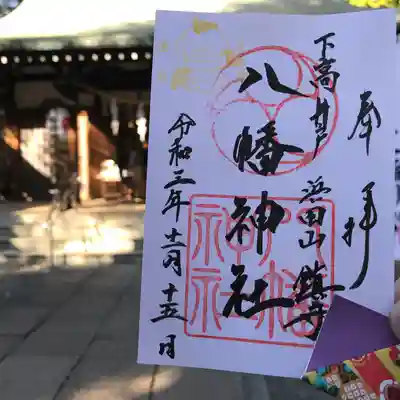 奉拝
下高井戸
浜田山鎮守
八幡神社
八幡神社
令和三年十一月十五日